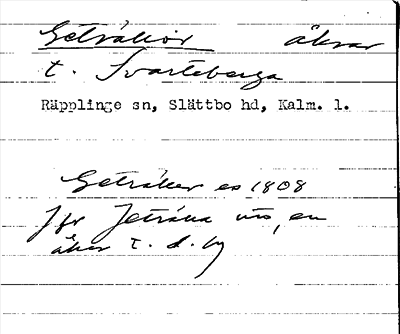 Getråkor åkrar
t. Svarteberga
Räpplinge sn, Slättbo hd, Kalm. l.
Getråker es 1808
Jfr Jetråka uts, en
åker t. d. by